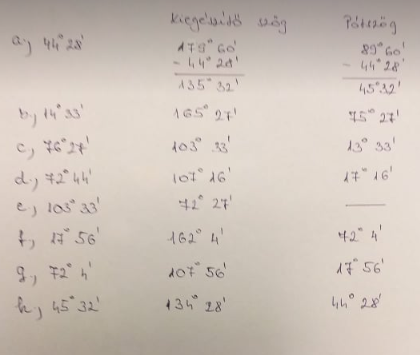 Kiegészítő szög Pótszög
a, 44° 28' 179° 60' 89° 60'
- 44° 28' - 44° 28'
135° 32' 45° 32'
b, 14° 33' 165° 27' 75° 27'
c, 76° 27' 103° 33' 13° 33'
d, 72° 44' 107° 16' 17° 16'
e, 103° 33' 72° 27' —
f, 17° 56' 162° 4' 72° 4'
g, 72° 4' 107° 56' 17° 56'
h, 45° 32' 134° 28' 44° 28'